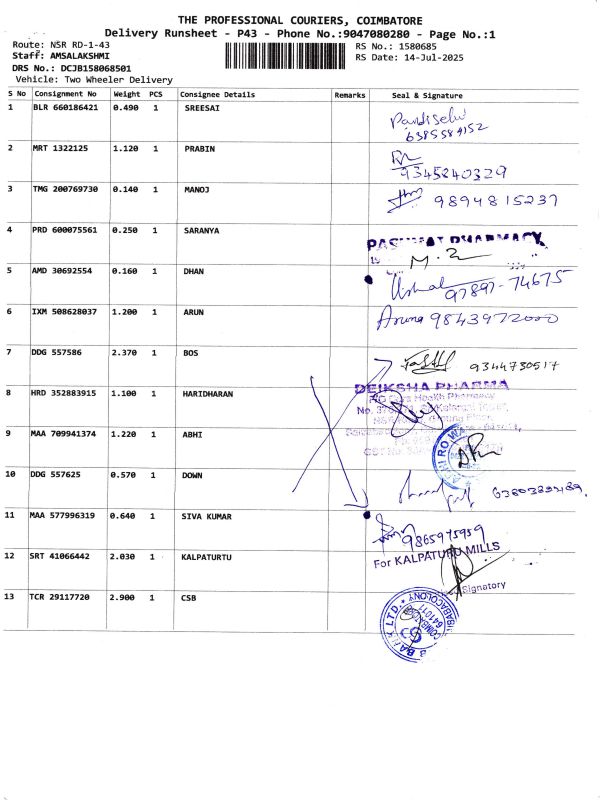 THE PROFESSIONAL COURIERS, COIMBATORE
Delivery Runsheet - P43 - Phone No.:9047080280 - Page No.:1
Route: NSR RD-1-43
RS No.: 1580685
Staff: AMSALAKSHMI
RS Date: 14-Jul-2025
DRS No.: DCJB158068501
Vehicle: Two Wheeler Delivery
S No Consignment No Weight PCS Consignee Details Remarks Seal & Signature
1 BLR 660186421 0.490 1 SREESAI
Pandiselvi
6385584152
2 MRT 1322125 1.120 1 PRABIN
9345240329
3 TMG 200769730 0.140 1 MANOJ 9894815237
4 PRD 600075561 0.250 1 SARANYA
PHARMACY
5 AMD 30692554 0.160 1 DHAN
97897-74675
6 IXM 508628037 1.200 1 ARUN Aruna 9843972000
7 DDG 557586 2.370 1 BOS 9344730517
8 HRD 352883915 1.100 1 HARIDHARAN
DEIKSHA PHARMA
9 MAA 709941374 1.220 1 ABHI
10 DDG 557625 0.570 1 DOWN
11 MAA 577996319 0.640 1 SIVA KUMAR
9865975959
For KALPATURU MILLS
12 SRT 41066442 2.030 1 KALPATURTU
Signatory
13 TCR 29117720 2.900 1 CSB